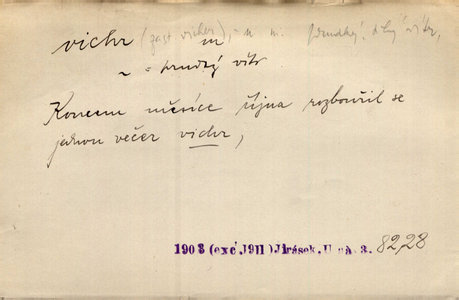 vichr (zast. vicher), -u m. prudký, silný vítr,
m
~ = prudký vítr
Koncem měsíce října rozbouřil se
jednou večer vichr,
1903 (exc. 1911) Jirásek. U nás. 3. 82,28